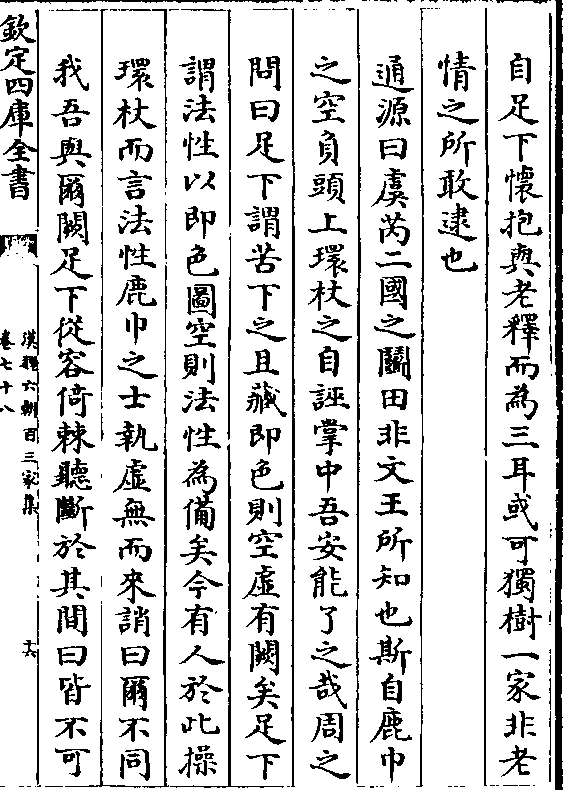 自足下懷抱與老釋而為三耳或可獨樹一家非老
情之所敢逮也
通源曰虞芮二國之鬭田非文王所知也斯自鹿巾
之空負頭上環杖之自誣掌中吾安能了之哉周之
問曰足下謂苦下之且藏即色則空虚有闕矣足下
謂法性以即色圖空則法性為備矣今有人於此操
環杖而言法性鹿巾之士執虚無而來誚曰爾不同
我吾與爾闕足下從容倚棘聽斷於其間曰皆不可
欽定四庫全書
漢魏六朝百三家集
卷七十八